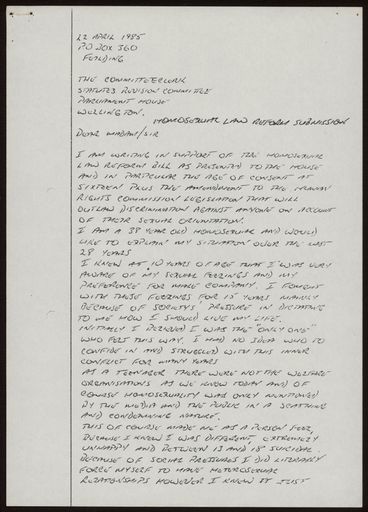 22 APRIL 1985
P.O BOX 360
FEILDING
THE COMMITTEE CLERK
STATUTES REVISION COMMITTEE
PARLIAMENT HOUSE
WELLINGTON.
HOMOSEXUAL LAW REFORM SUBMISSION
DEAR MADAM/SIR
I AM WRITING IN SUPPORT OF THE HOMOSEXUAL
LAW REFORM BILL AS PRESENTED TO THE HOUSE
AND IN PARTICULAR THE AGE OF CONSENT AT
SIXTEEN PLUS THE AMENDMENT TO THE HUMAN
RIGHTS COMMISSION LEGISLATION THAT WILL
OUTLAW DISCRIMINATION AGAINST ANYONE ON ACCOUNT
OF THEIR SEXUAL ORIENTATION.
I AM A 38 YEAR OLD HOMOSEXUAL AND WOULD
LIKE TO EXPLAIN MY SITUATION OVER THE LAST
28 YEARS
I KNEW AT 10 YEARS OF AGE THAT I WAS VERY
AWARE OF MY SEXUAL FEELINGS AND MY
PREFERENCE FOR MALE COMPANY. I FOUGHT
WITH THESE FEELINGS FOR 15 YEARS MAINLY
BECAUSE OF SOCIETYS' PRESSURE IN DICTATING
TO ME HOW I SHOULD LIVE MY LIFE.
INITIALLY I BELIEVED I WAS THE "ONLY ONE"
WHO FELT THIS WAY. I HAD NO IDEA WHO TO
CONFIDE IN AND STRUGGLED WITH THIS INNER
CONFLICT FOR MANY YEARS
AS A TEENAGER THERE WERE NOT THE WELFARE
ORGANISATIONS AS WE KNOW TODAY AND OF
COURSE HOMOSEXUALITY WAS ONLY MENTIONED
BY THE MEDIA AND THE PUBLIC IN A SCATHING
AND CONDEMNING NATURE.
THIS OF COURSE MADE ME AS A PERSON FEEL,
BECAUSE I KNEW I WAS DIFFERENT, EXTREMELY
UNHAPPY AND BETWEEN 13 AND 18 SUICIDAL.
BECAUSE OF SOCIAL PRESSURES I DID LITERALLY
FORCE MYSELF TO HAVE HETEROSEXUAL
RELATIONSHIPS HOWEVER I KNEW IT JUST